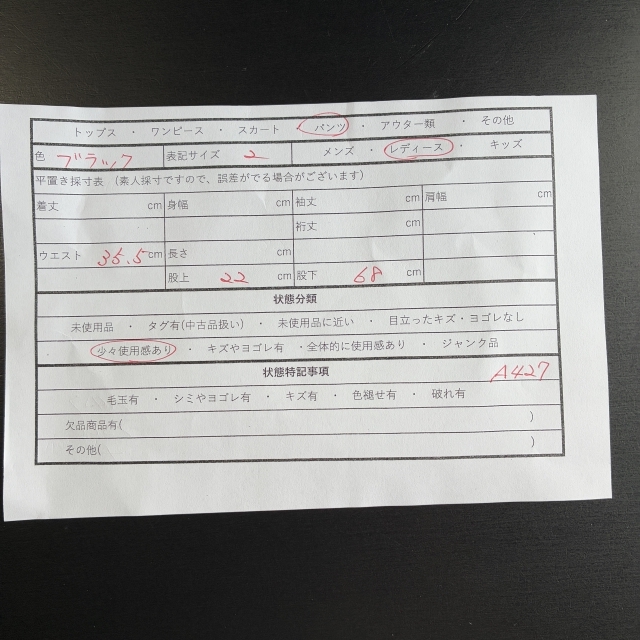 トップス ・ ワンピース ・ スカート ・ パンツ ・ アウター類 ・ その他
色 ブラック 表記サイズ 2 メンズ ・ レディース ・ キッズ
平置き採寸表 (素人採寸ですので、誤差がでる場合がございます)
着丈 cm 身幅 cm 袖丈 cm 肩幅 cm
裄丈 cm
ウエスト 35.5cm 長さ cm
股上 22 cm 股下 68 cm
状態分類
未使用品 ・ タグ有(中古品扱い) ・ 未使用品に近い ・ 目立ったキズ・ヨゴレなし
少々使用感あり ・ キズやヨゴレ有 ・全体的に使用感あり ・ ジャンク品
状態特記事項 A427
毛玉有 ・ シミやヨゴレ有 ・ キズ有 ・ 色褪せ有 ・ 破れ有
欠品商品有( )
その他( )